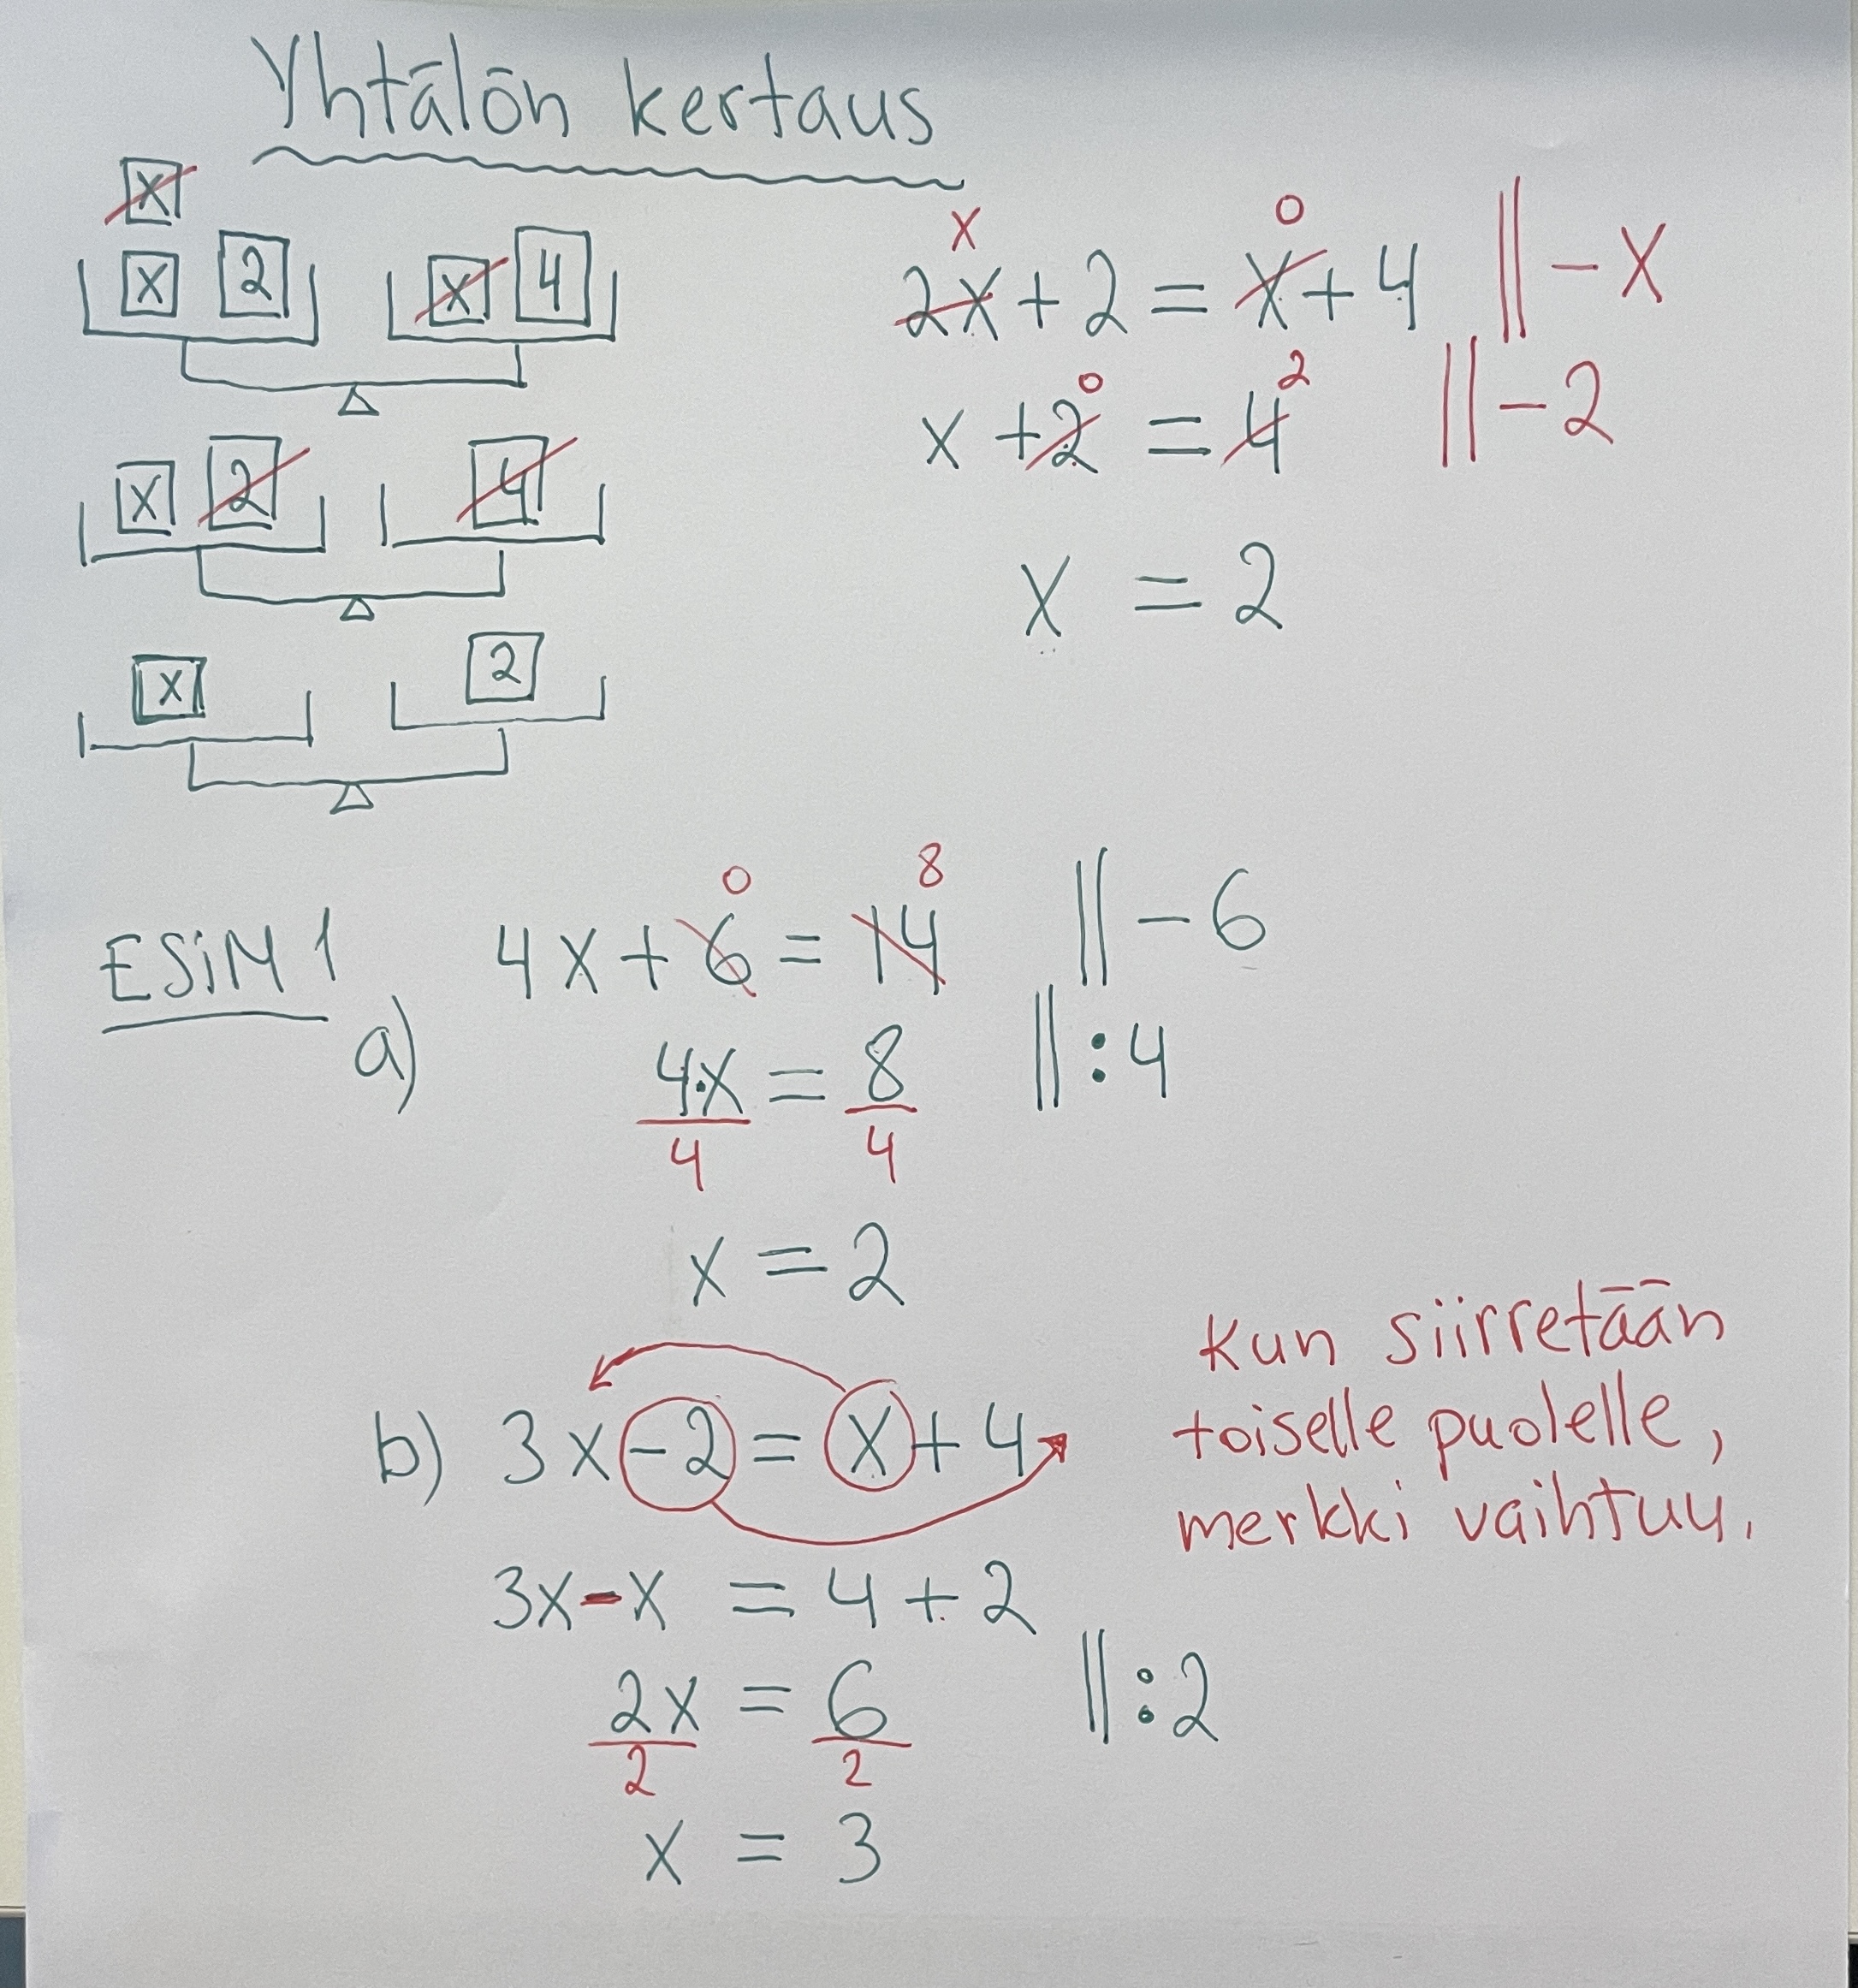 Yhtälön kertaus
x
x 2 x 4
x 0
2x + 2 = x + 4 || - x
0 2
x + 2 = 4 || - 2
x 2 4
x = 2
x 2
0 8
ESiM 1 4x + 6 = 14 || - 6
a) 4·x = 8 || : 4
4 4
x = 2
Kun siirretään
toiselle puolelle,
merkki vaihtuu.
b) 3x - 2 = x + 4
3x - x = 4 + 2
2x = 6 || : 2
2 2
x = 3